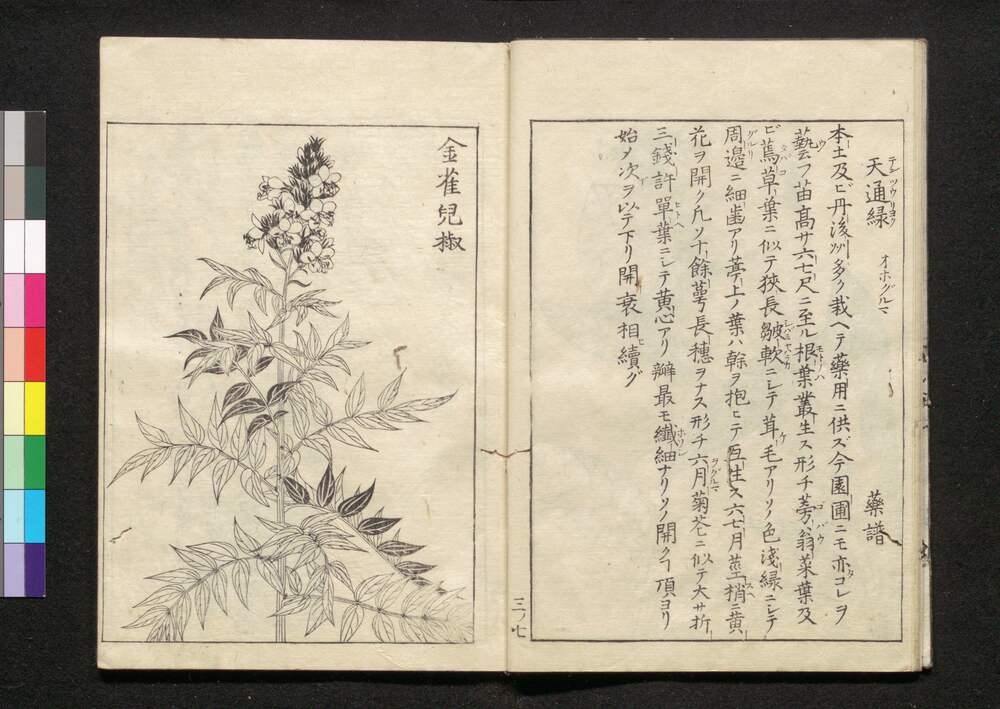 天通緑 オホグルマ 藥譜
テンツウリヨク
本土及ビ丹後州多ク栽ヘテ藥用ニ供ズ今園圃ニモ亦コレヲ
藝フ苗高サ六七尺ニ至ル根葉叢生ス形チ蒡翁菜葉及
ビ蔫草葉ニ似テ狹長皺軟ニシテ茸毛アリソノ色淺緑ニシテ
周邊ニ細歯アリ葶上ノ葉ハ幹ヲ抱ヒテ互生ス六七月莖梢ニ黄
花ヲ開ク凡ソ十餘萼長穗ヲナス形チ六月菊花ニ似テ大サ折
三錢許單葉ニシテ黄心アリ瓣最モ纖細ナリソノ開クヿ頂ヨリ
始メ次ヲ以テ下リ開衰相續グ
三ノ七
金雀兒椒